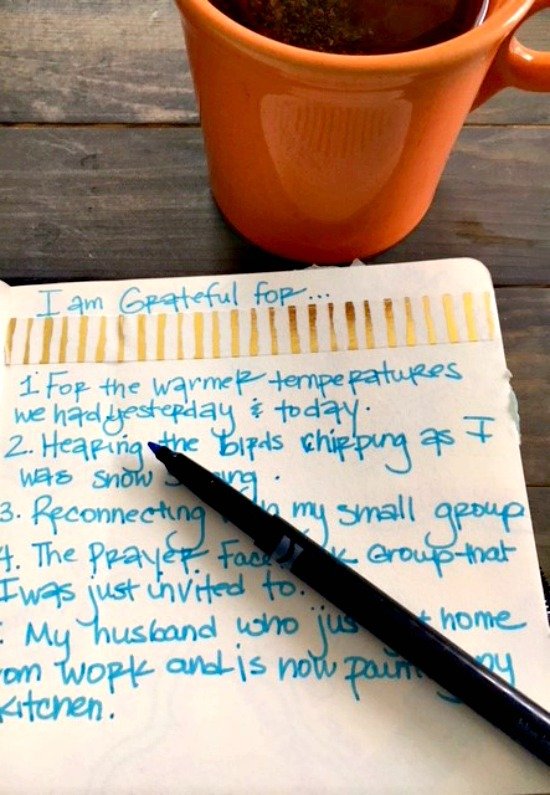 I am Grateful for...
1. For the warmer temperatures
we had yesterday & today.
2. Hearing the birds chirping as I
was snow
3. Reconnecting my small group
4. The Prayer Group that
I was just invited to.
My husband who home
work and is now
kitchen.